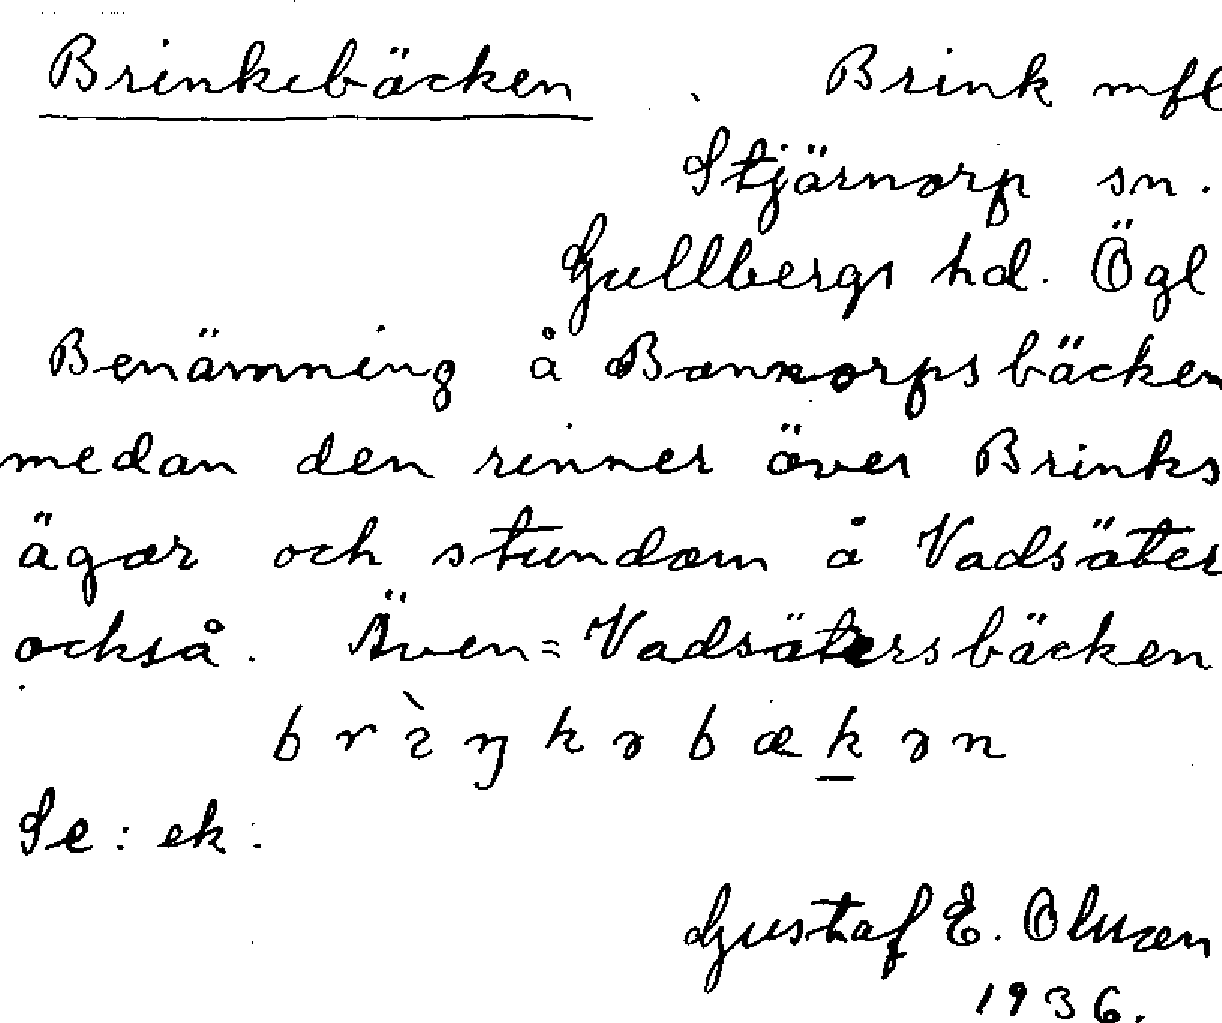 Brinkebäcken Brink mfl
Stjärnorp sn.
Gullbergs hd. Ögl
Benämning å Bannorpsbäcken
medan den rinner över Brinks
ägor och stundom å Vadsäter
också. Även = Vadsätersbäcken
brìŋkəbækən
Se: ek:
Gustaf E. Olsson
1936.